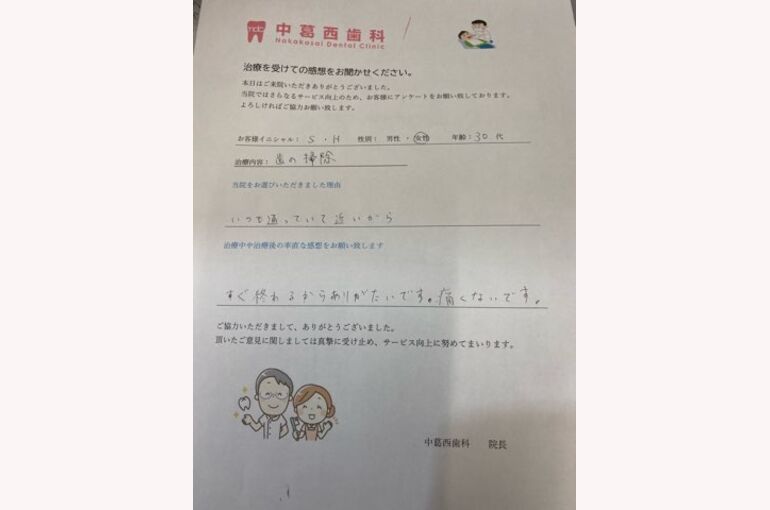 ndc 中葛西歯科
Nakakasai Dental Clinic
治療を受けての感想をお聞かせください。
本日はご来院いただきありがとうございました。
当院ではさらなるサービス向上のため、お客様にアンケートをお願い致しております。
よろしければご協力お願い致します。
お客様イニシャル： S ・ H 性別： 男性 ・ 女性 年齢：30 代
治療内容： 歯の掃除
当院をお選びいただきました理由
いつも通っていて近いから
治療中や治療後の率直な感想をお願い致します
すぐ終わるからありがたいです。痛くないです。
ご協力いただきまして、ありがとうございました。
頂いたご意見に関しましては真摯に受け止め、サービス向上に努めてまいります。
中葛西歯科 院長